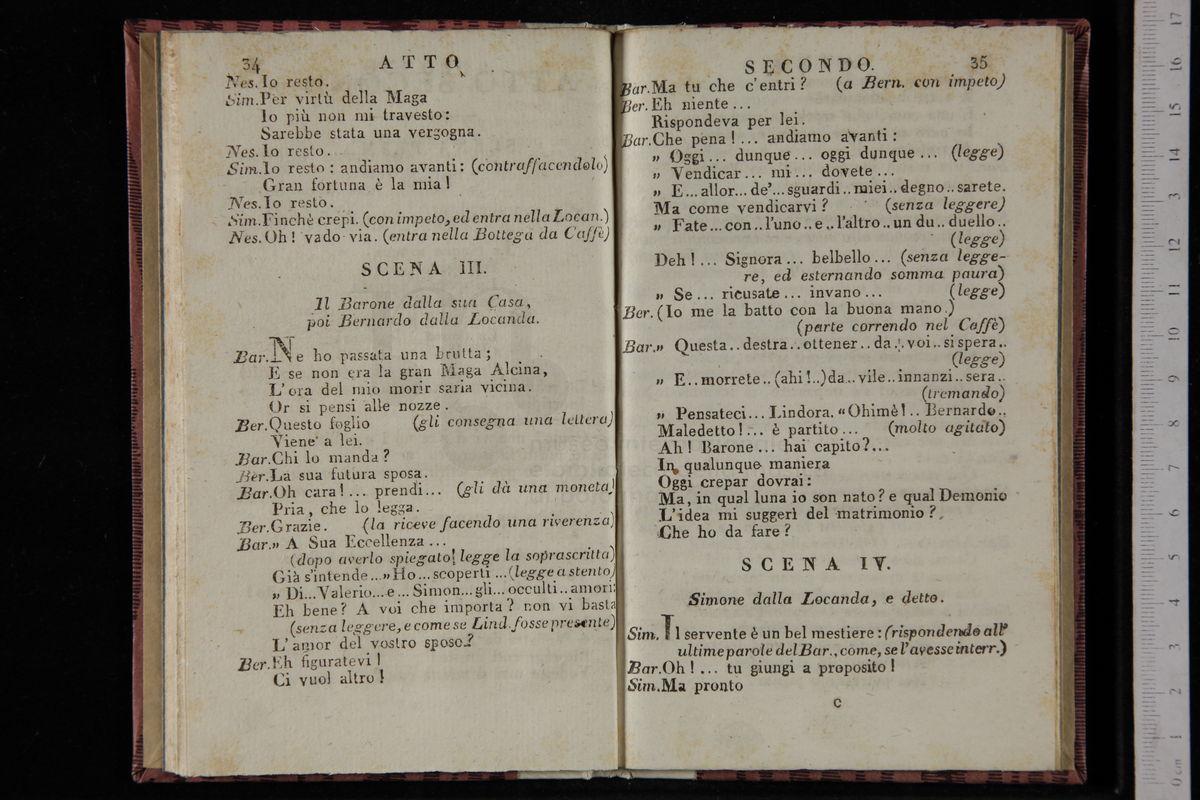 34 ATTO
Nes. Io resto.
Sim. Per virtù della Maga
Io più non mi travesto:
Sarebbe stata una vergogna.
Nes. Io resto.
Sim. Io resto: andiamo avanti: (contraffacendolo)
Gran fortuna è la mia!
Nes. Io resto.
Sim. Finchè crepi. (con impeto, ed entra nella Locan.)
Nes. Oh! vado via. (entra nella Bottega da Caffè)
SCENA III.
Il Barone dalla sua Casa,
poi Bernardo dalla Locanda.
Bar. Ne ho passata una brutta;
E se non era la gran Maga Alcina,
L'ora del mio morir saria vicina.
Or si pensi alle nozze.
Ber. Questo foglio (gli consegna una lettera)
Viene a lei.
Bar. Chi lo manda?
Ber. La sua futura sposa.
Bar. Oh cara!... prendi... (gli dà una moneta)
Pria, che lo legga.
Ber. Grazie. (la riceve facendo una riverenza)
Bar. » A Sua Eccellenza...
(dopo averlo spiegato legge la soprascritta)
Già s'intende...» Ho... scoperti... (legge a stento)
» Di... Valerio... e... Simon... gli... occulti.. amori:
Eh bene? A voi che importa? non vi basta
(senza leggere, e come se Lind. fosse presente)
L'amor del vostro sposo?
Ber. Eh figuratevi!
Ci vuol altro!
SECONDO. 35
Bar. Ma tu che c'entri? (a Bern. con impeto)
Ber. Eh niente...
Rispondeva per lei.
Bar. Che pena!... andiamo avanti:
» Oggi... dunque... oggi dunque... (legge)
» Vendicar... mi... dovete...
» E... allor... de'... sguardi.. miei.. degno.. sarete.
Ma come vendicarvi? (senza leggere)
» Fate... con.. l'uno.. e.. l'altro.. un du.. duello..
(legge)
Deh!... Signora... belbello... (senza legge-
re, ed esternando somma paura)
» Se... ricusate... invano... (legge)
Ber. (Io me la batto con la buona mano.)
(parte correndo nel Caffè)
Bar. » Questa.. destra.. ottener.. da.. voi.. si spera..
(legge)
» E.. morrete.. (ahi!..) da.. vile.. innanzi.. sera..
(tremando)
» Pensateci... Lindora. “Ohimè!.. Bernardo..
Maledetto!... è partito... (molto agitato)
Ah! Barone... hai capito?...
In qualunque maniera
Oggi crepar dovrai:
Ma, in qual luna io son nato? e qual Demonio
L'idea mi suggerì del matrimonio?
Che ho da fare?
SCENA IV.
Simone dalla Locanda, e detto.
Sim. Il servente è un bel mestiere: (rispondendo all'
ultime parole del Bar., come, se l'avesse interr.)
Bar. Oh!... tu giungi a proposito!
Sim. Ma pronto
C
0 cm 1 2 3 4 5 6 7 8 9 10 11 12 13 14 15 16 17